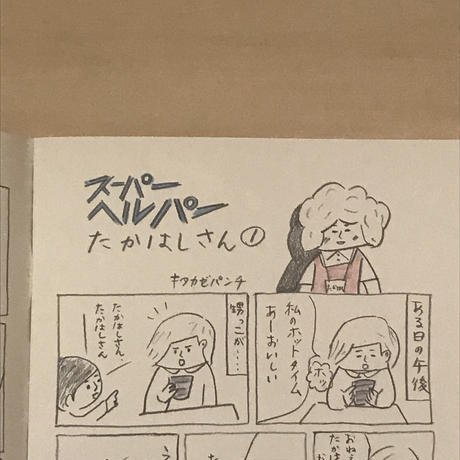 スーパー
ヘルパー
たかはしさん①
キタカゼパンチ
ある日の午後
私のホットタイム
あーおいしい
ホッ
甥っこが‥‥
たかはしさん、
たかはしさん
おねえ
たかは